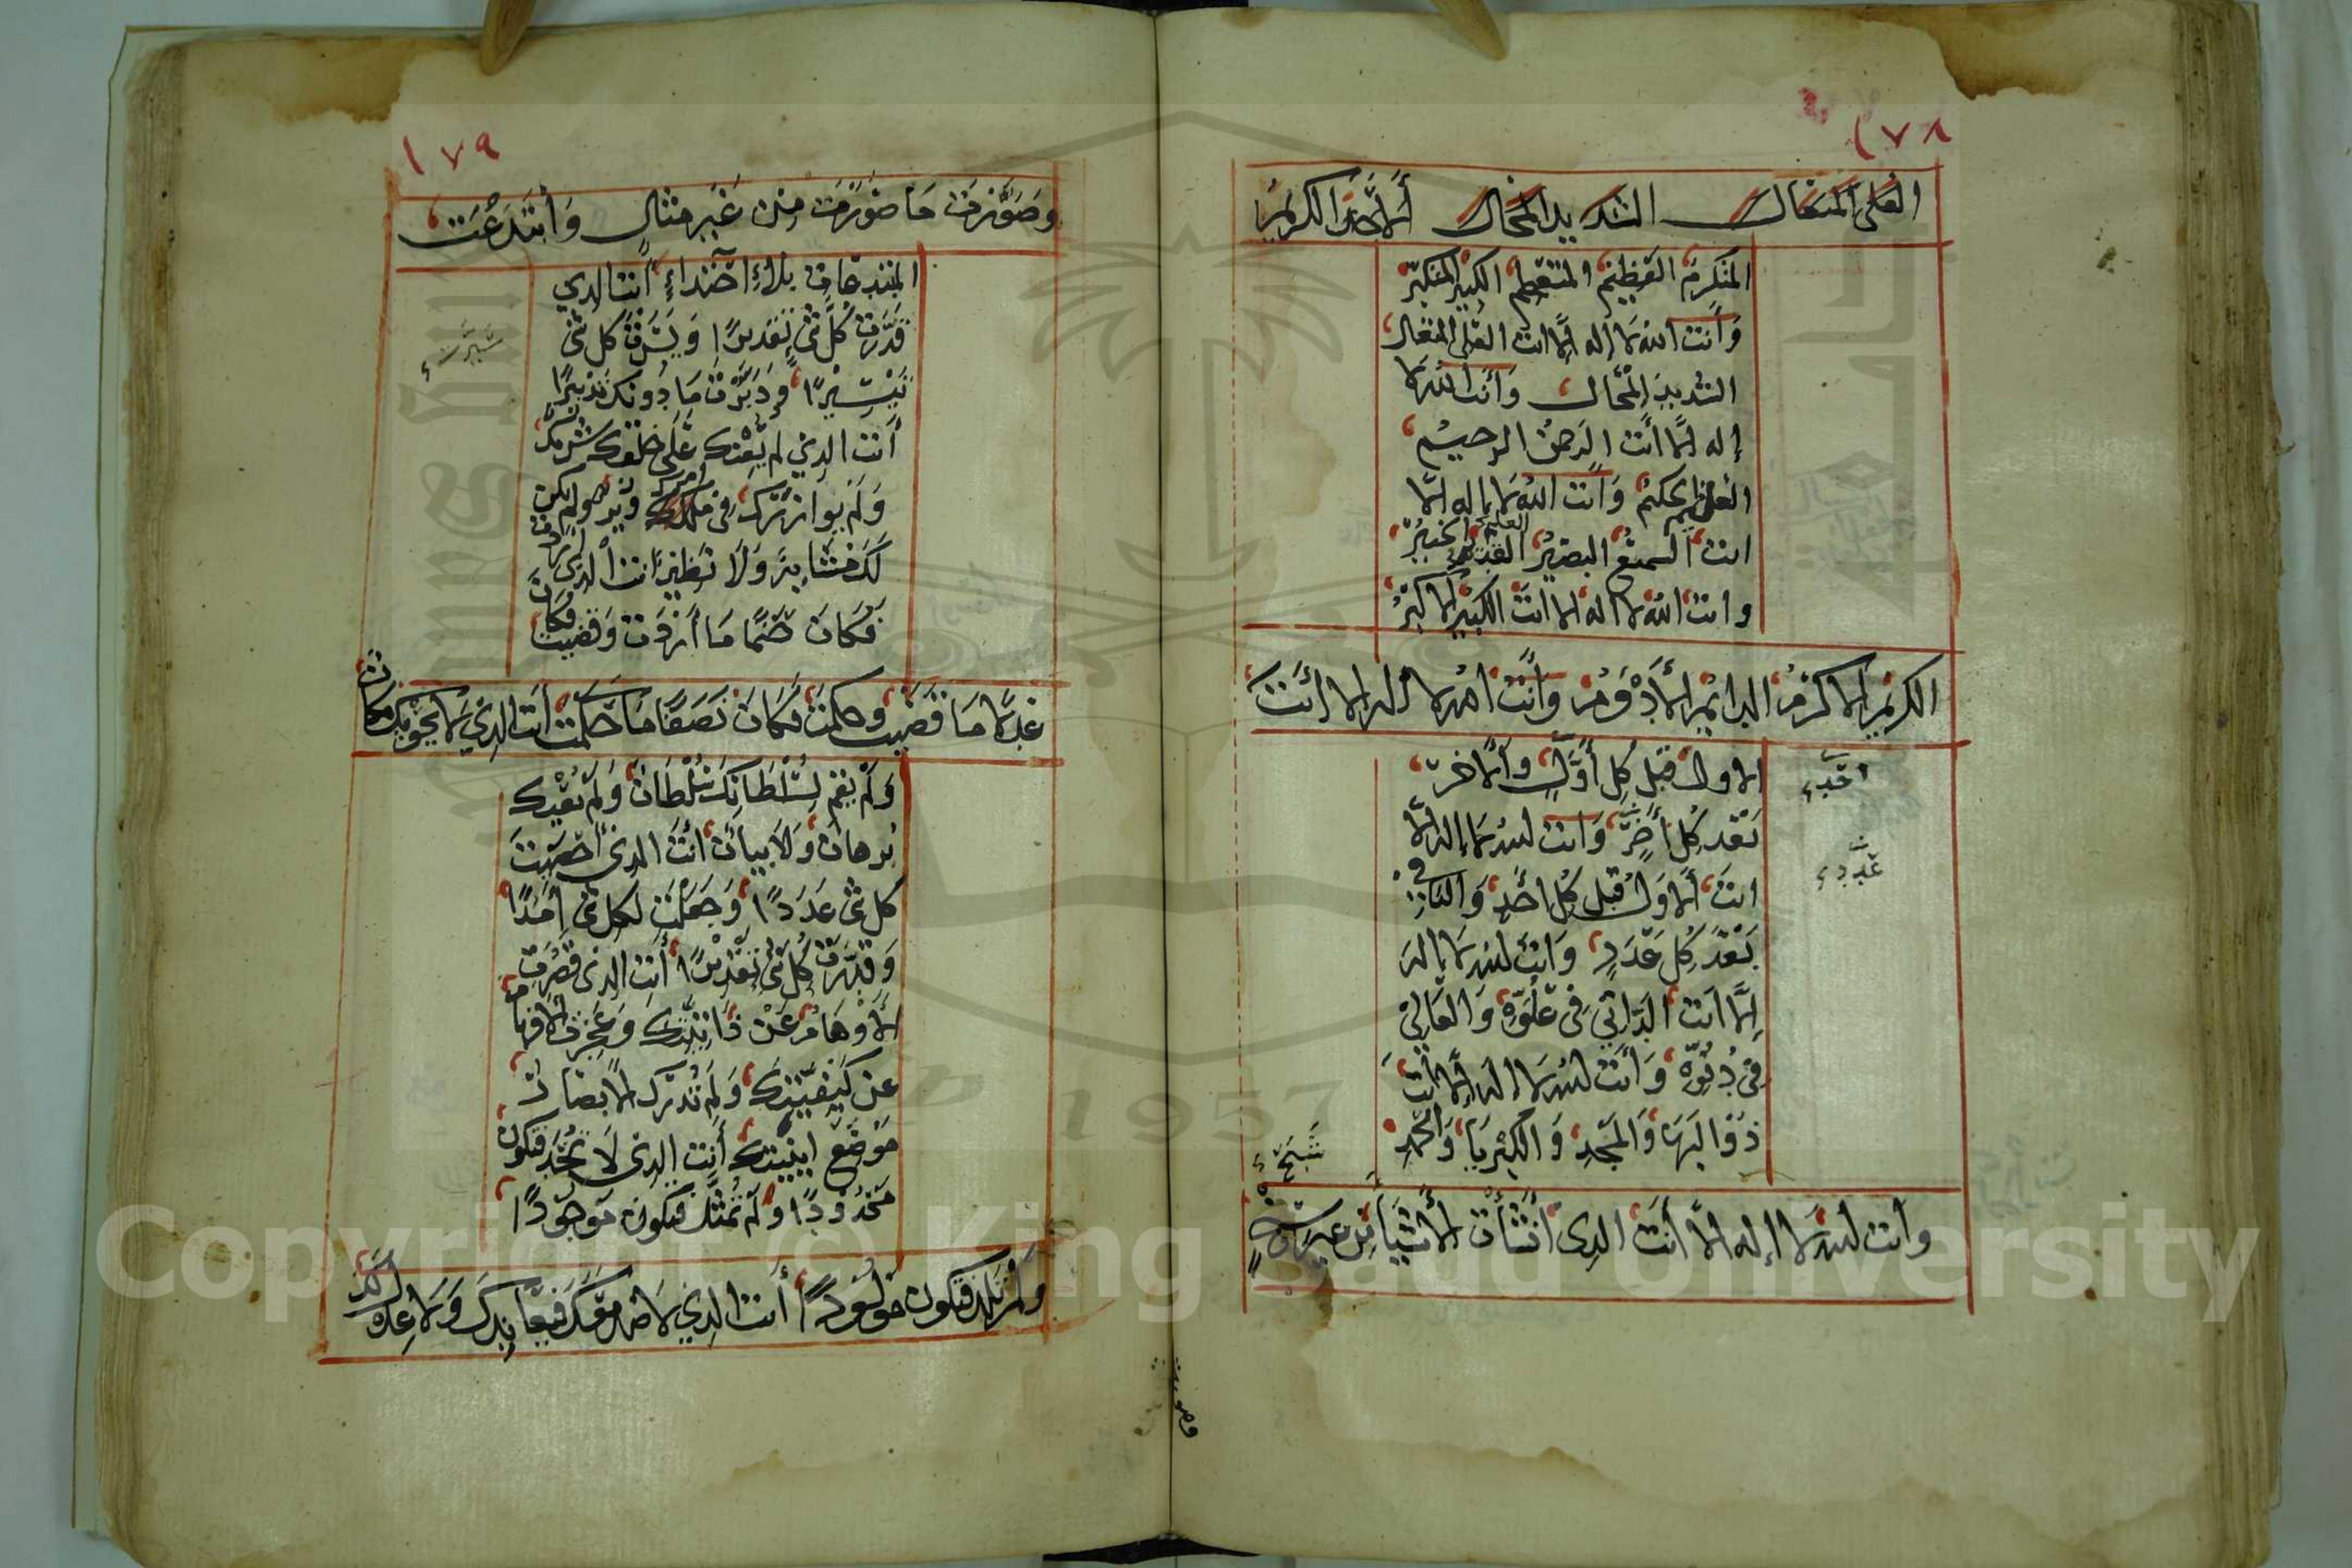 ١٧٨
العلي المتعال الشديد المحال الأحد الكريم
المتكرم العظيم المتعظم الكبير المتكبر
وأنت الله لا إله إلا أنت العلي المتعال
الشديد المحال وأنت الله لا
إله إلا أنت الرحمن الرحيم
العليم الحكيم وأنت الله لا إله إلا
انت السميع البصير القديم الخبير
وانت الله لا اله الا انت الكبير الاكبر
الكريم الاكرم الدائم الأدوم وأنت الله لا اله الا أنت
الاول قبل كل أول والآخر
بعد كل آخر وانت الله لا إله إلا
انت الأول قبل كل احد والثاني
بعد كل عدد وانت الله لا إله
إلا انت الداني في علوه والعالي
في دنوه وأنت الله لا اله إلا أنت
ذو البهاء والمجد والكبرياء والحمد
وأنت الله لا إله الا أنت الذي انشأت الأشياء من غير سنخ
احد
عدد
شبح
وصورت
١٧٩
وصورت ما صورت من غير مثال وابتدعت
المبتدعات بلا احتذاء أنت الذي
قدرت كل شئ تقديرا ويسرت كل شئ
تيسيرا ودبرت ما دونك تدبيرا
أنت الذي لم يعنك على خلقك شريك
ولم يوازرك في أمرك وزير ولم يكن
لك مشابه ولا نظير انت الذي اردت
فكان حتما ما أردت وقضيت فكان
عدلا ما قضيت وحكمت فكان نصفا ما حكمت أنت الذي لا يحويك مكان
ولم يقم لسلطانك سلطان ولم يعيك
برهان ولا بيان انت الذي أحصيت
كل شئ عددا وجعلت لكل شئ امدا
وقدرت كل شئ تقديرا أنت الذي قصرت
الأوهام عن ذاتيتك وعجزت الافهام
عن كيفيتك ولم تدرك الابصار
موضع اينيتك أنت الذي لا تحد فتكون
محدودا ولم تمثل فتكون موجودا
ولم تلد فتكون مولودا أنت الذي لا ضد معك فيعاندك ولا عدل لك